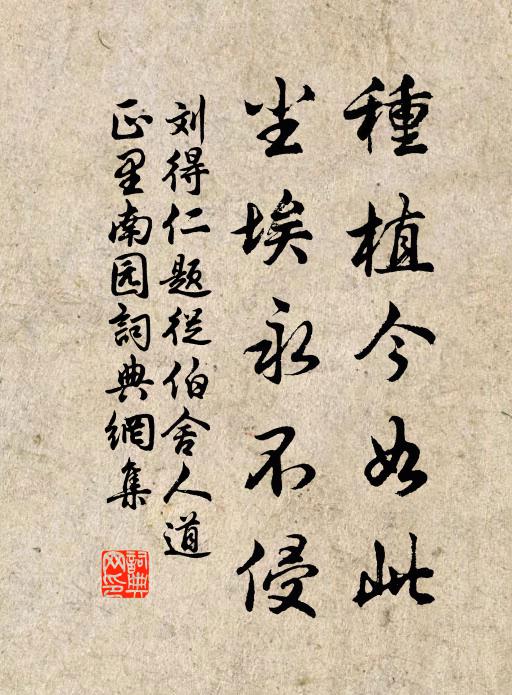 種植今如此
尘埃永不侵
刘得仁题從伯舍人道
正里南园詞典網集
詞典
网印